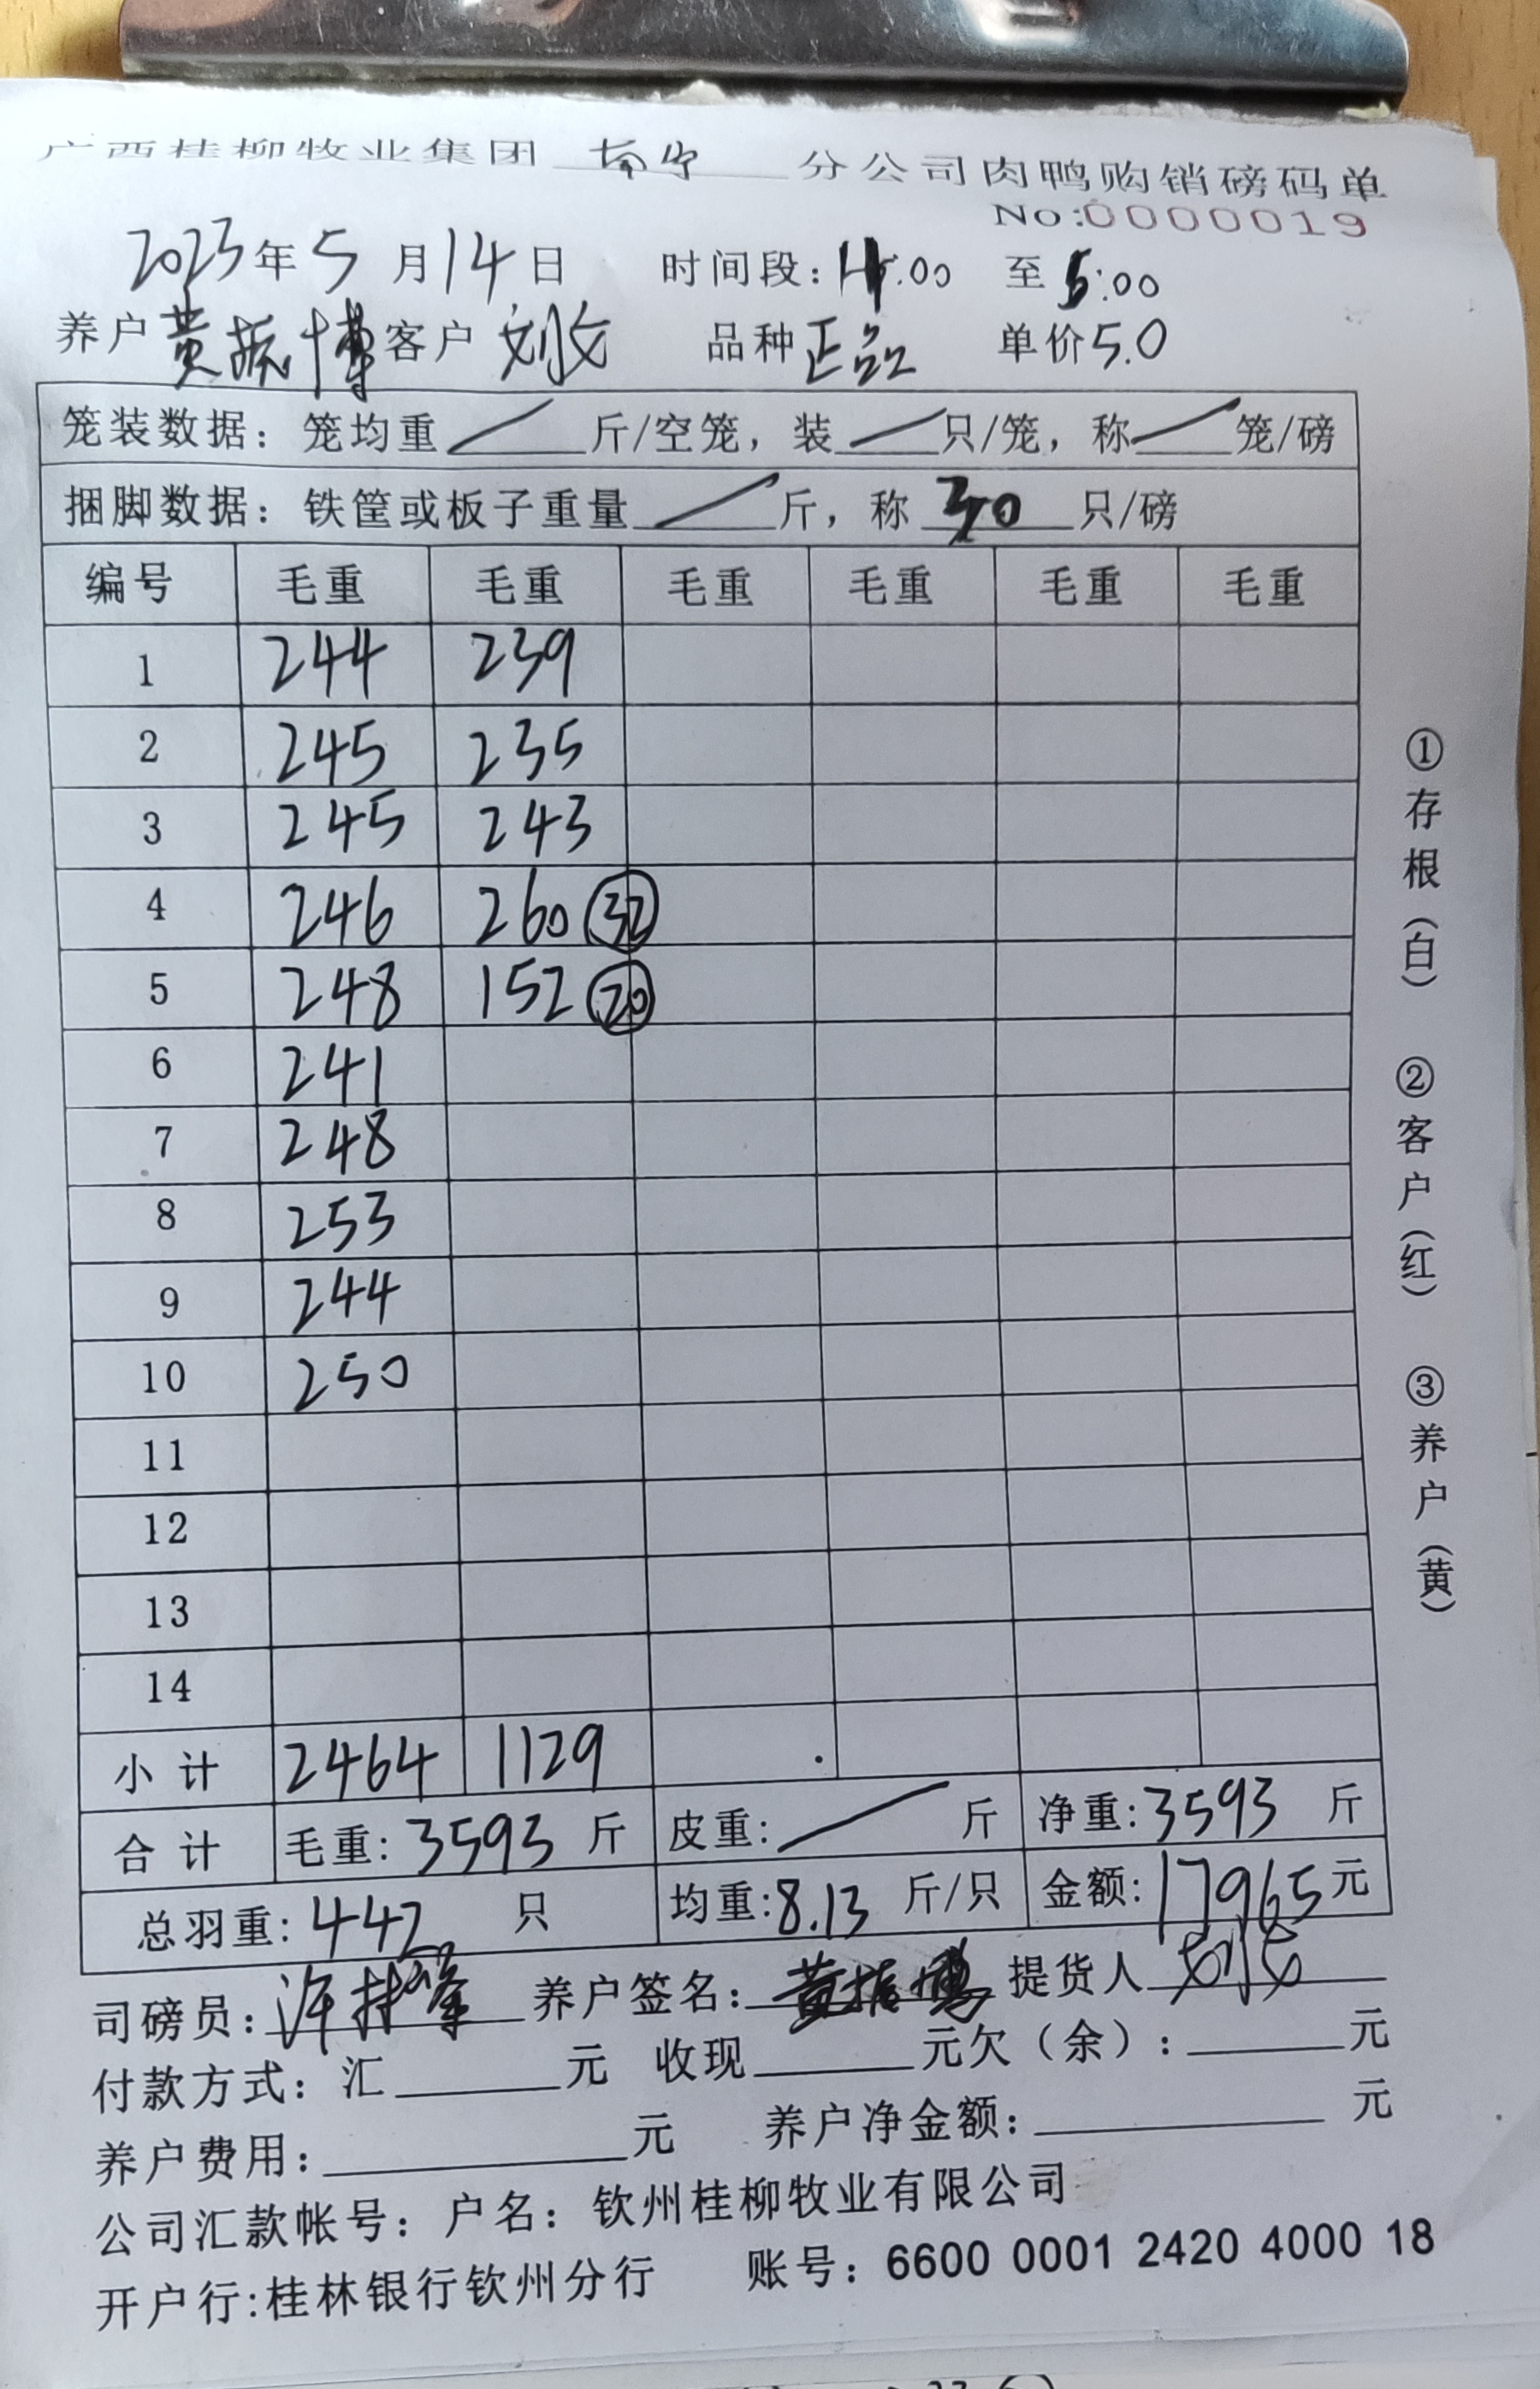 广西桂柳牧业集团 南宁 分公司肉鸭购销磅码单
No:0000019
2023年5月14日 时间段: :00 至 5:00
养户 黄振博 客户 刘文 品种 正品 单价 5.0
笼装数据: 笼均重 / 斤/空笼, 装 / 只/笼, 称 / 笼/磅
捆脚数据: 铁筐或板子重量 / 斤, 称 30 只/磅
编号 毛重 毛重 毛重 毛重 毛重 毛重
1 244 239
2 245 235
3 245 243
4 246 260 ㉜
5 248 152 ⑳
6 241
7 248
8 253
9 244
10 250
11
12
13
14
小计 2464 1129
合计 毛重: 3593 斤 皮重: / 斤 净重: 3593 斤
总羽重: 442 只 均重: 8.13 斤/只 金额: 17965 元
司磅员: 养户签名: 黄振博 提货人 刘文
付款方式: 汇 元 收现 元欠(余): 元
养户费用: 元 养户净金额: 元
公司汇款帐号: 户名: 钦州桂柳牧业有限公司
开户行:桂林银行钦州分行 账号: 6600 0001 2420 4000 18
①存根(白) ②客户(红) ③养户(黄)